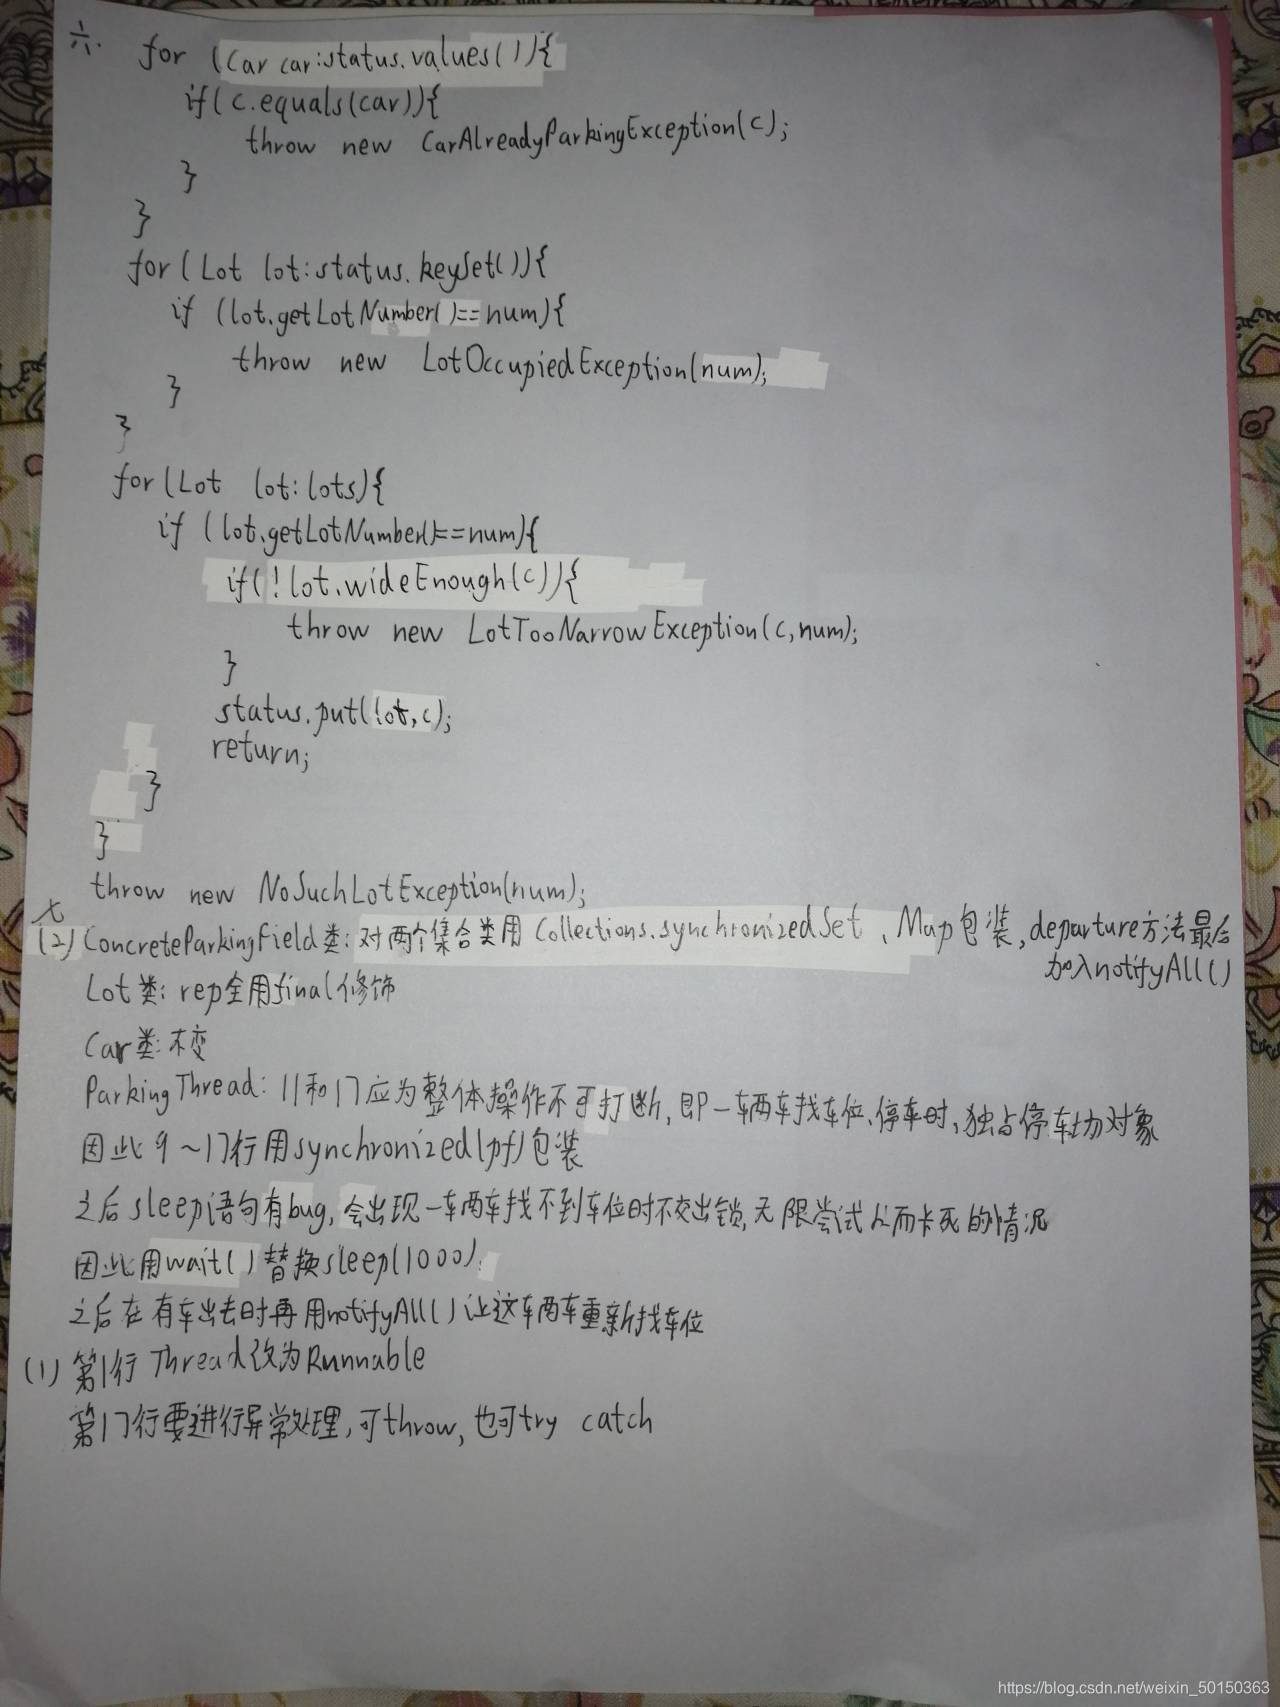 六. for (Car car:status.values()){
if(c.equals(car)){
throw new CarAlreadyParkingException(c);
}
}
for(Lot lot:status.keySet()){
if (lot.getLotNumber()==num){
throw new LotOccupiedException(num);
}
}
for(Lot lot:lots){
if (lot.getLotNumber()==num){
if(!lot.wideEnough(c)){
throw new LotTooNarrowException(c,num);
}
status.put(lot,c);
return;
}
}
throw new NoSuchLotException(num);
七
(2) ConcreteParkingField类:对两个集合类用Collections.synchronizedSet、Map包装,departure方法最后
加入notifyAll()
Lot类:rep全用final修饰
Car类:不变
ParkingThread: 11和17应为整体操作不可打断,即一辆车找车位、停车时,独占停车场对象
因此9~17行用synchronized(pf)包装
之后sleep语句有bug,会出现一车辆车找不到车位时不交出锁,无限尝试从而卡死的情况
因此用wait()替换sleep(1000).
之后在有车出去时再用notifyAll()让这车辆车重新找车位
(1) 第1行 Thread改为Runnable
第17行要进行异常处理,可throw,也可try catch
https://blog.csdn.net/weixin_50150363